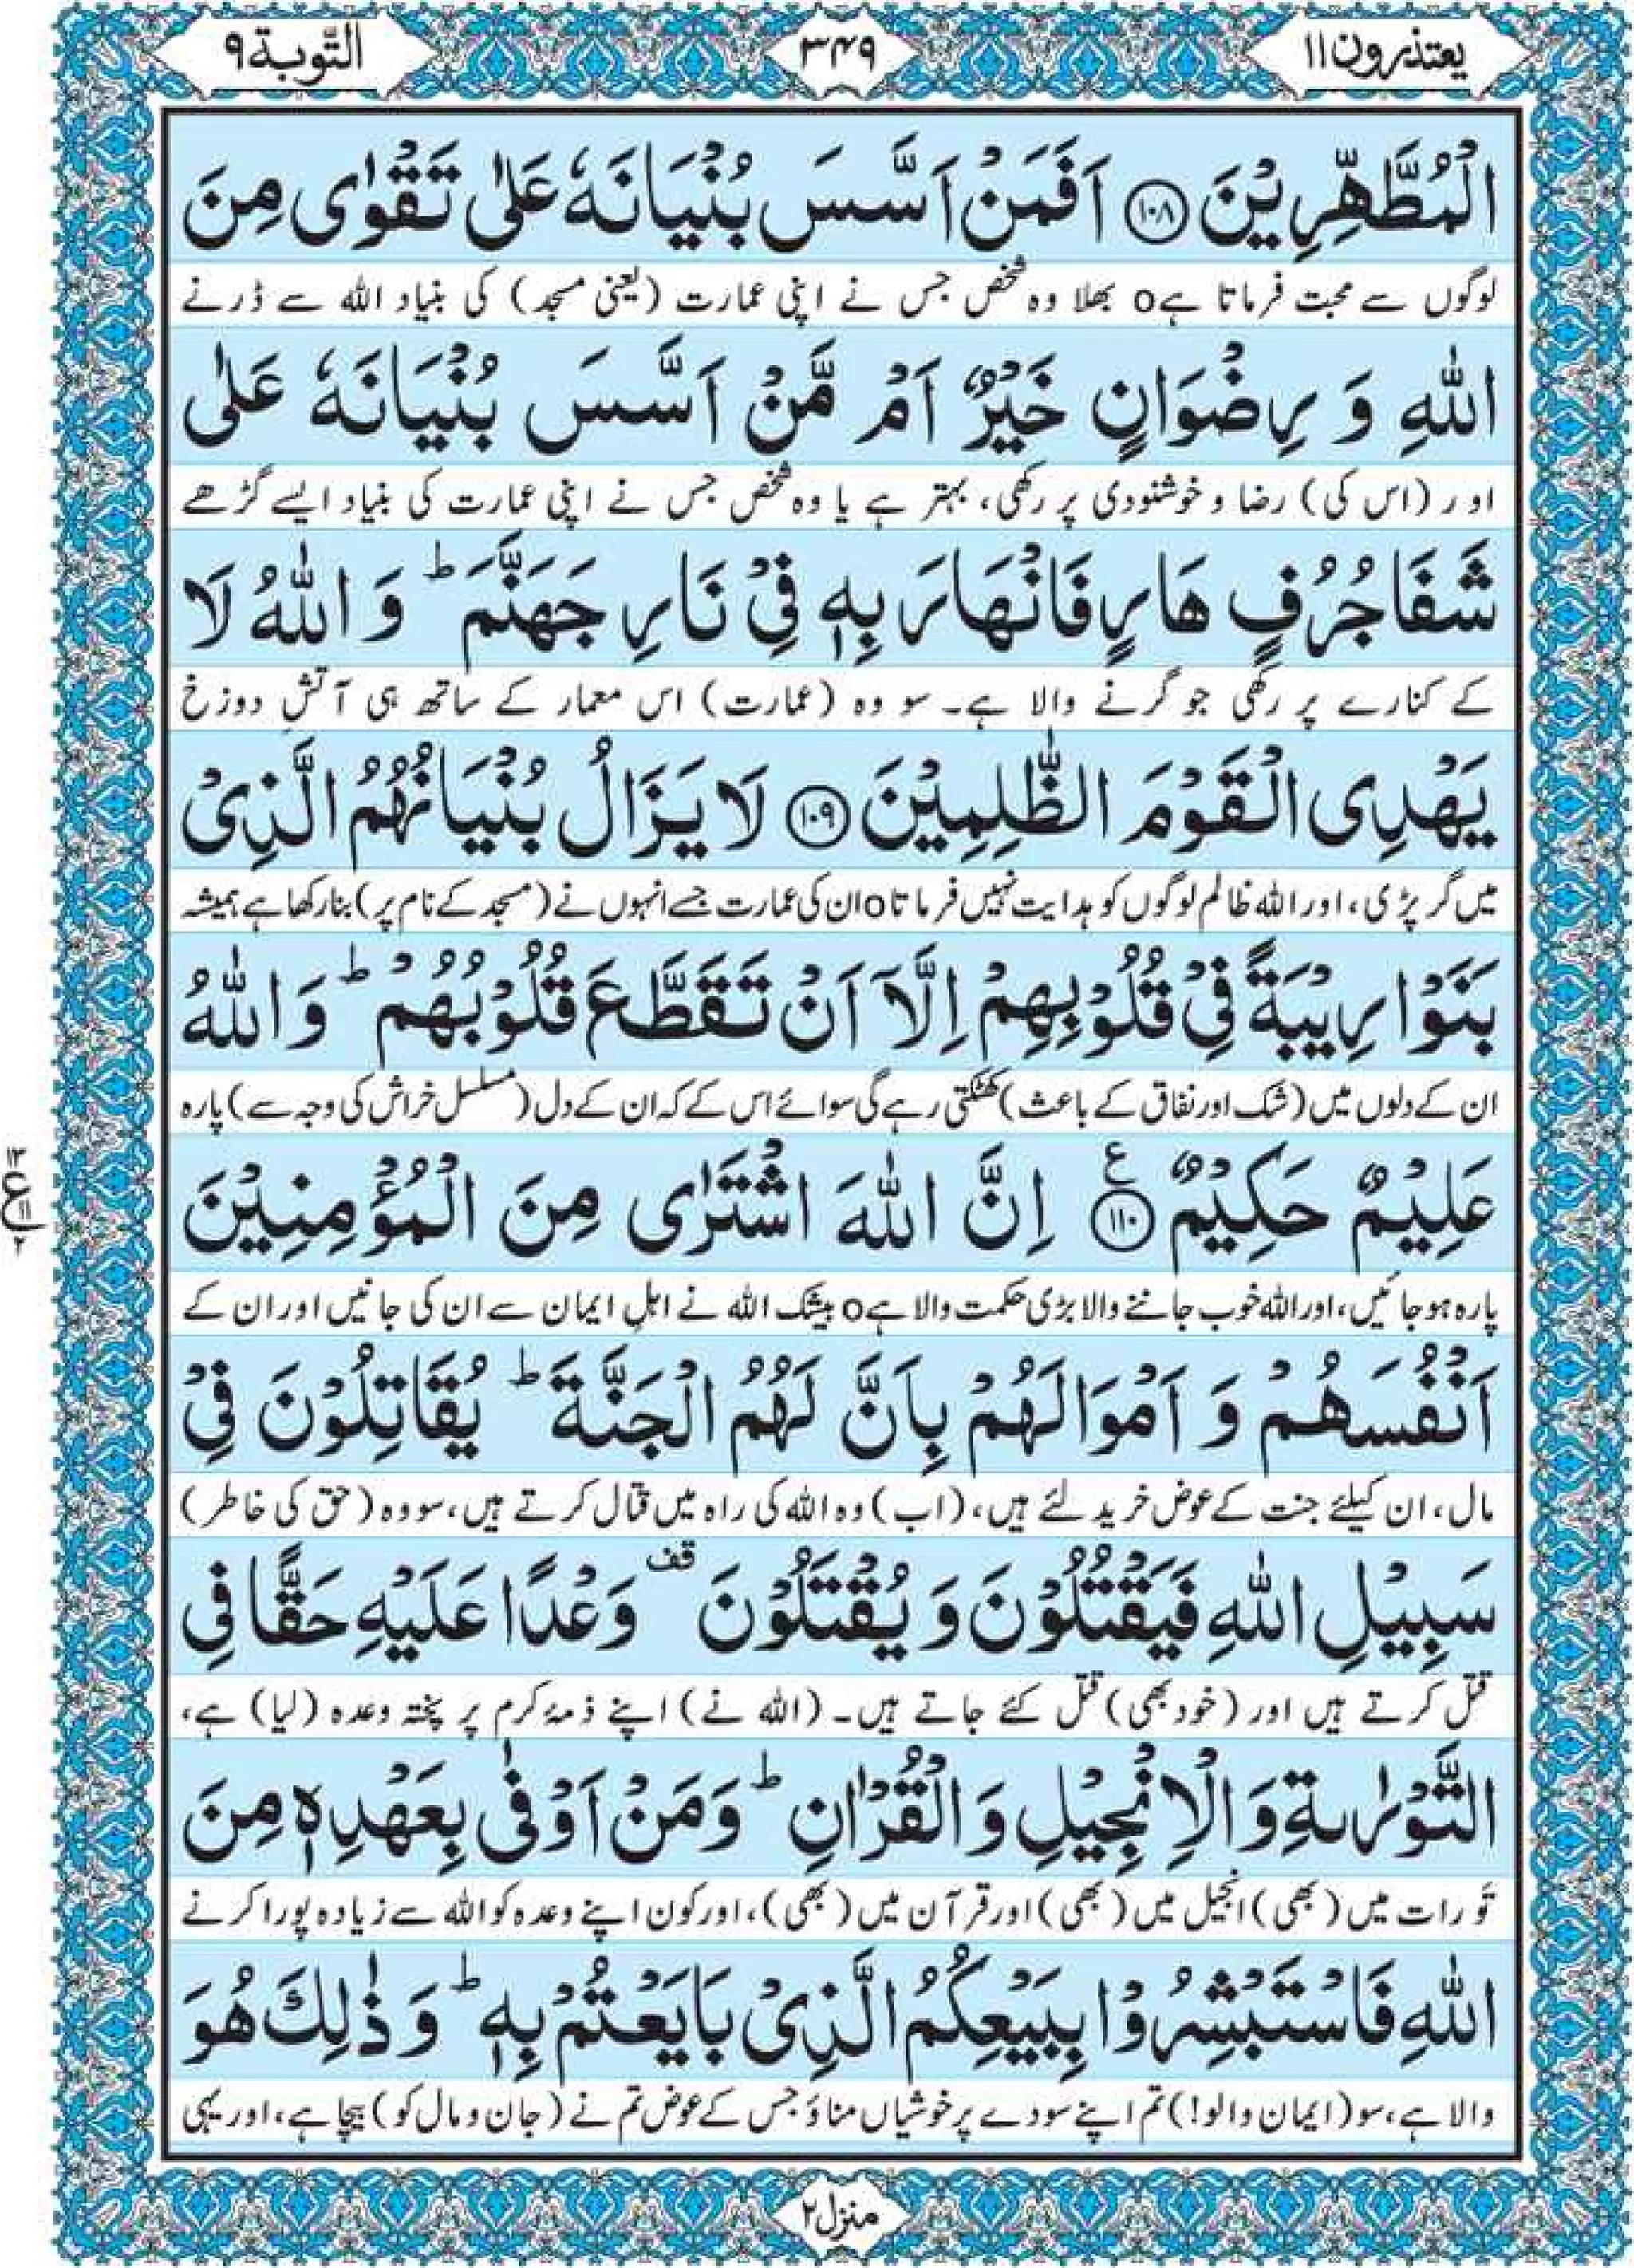 یعتذرون۱۱
۳۴۹
التوبة۹
الْمُطَّهِّرِیْنَ ﴿۱۰۸﴾ اَفَمَنْ اَسَّسَ بُنْیَانَهٗ عَلٰی تَقْوٰی مِنَ
لوگوں سے محبت فرماتا ہے o بھلا وہ شخص جس نے اپنی عمارت (یعنی مسجد) کی بنیاد اللہ سے ڈرنے
اللّٰهِ وَ رِضْوَانٍ خَیْرٌ اَمْ مَّنْ اَسَّسَ بُنْیَانَهٗ عَلٰی
اور (اس کی) رضا و خوشنودی پر رکھی، بہتر ہے یا وہ شخص جس نے اپنی عمارت کی بنیاد ایسے گڑھے
شَفَا جُرُفٍ هَارٍ فَانْهَارَ بِهٖ فِیْ نَارِ جَهَنَّمَ ؕ وَ اللّٰهُ لَا
کے کنارے پر رکھی جو گرنے والا ہے۔ سو وہ (عمارت) اس معمار کے ساتھ ہی آتشِ دوزخ
یَهْدِی الْقَوْمَ الظّٰلِمِیْنَ ﴿۱۰۹﴾ لَا یَزَالُ بُنْیَانُهُمُ الَّذِیْ
میں گر پڑی، اور اللہ ظالم لوگوں کو ہدایت نہیں فرماتا o ان کی عمارت جسے انہوں نے (مسجد کے نام پر) بنا رکھا ہے ہمیشہ
بَنَوْا رِیْبَةً فِیْ قُلُوْبِهِمْ اِلَّاۤ اَنْ تَقَطَّعَ قُلُوْبُهُمْ ؕ وَ اللّٰهُ
ان کے دلوں میں (شک اور نفاق کے باعث) کھٹکتی رہے گی سوائے اس کے کہ ان کے دل (مسلسل خراش کی وجہ سے) پارہ
عَلِیْمٌ حَكِیْمٌ ﴿۱۱۰﴾ ع اِنَّ اللّٰهَ اشْتَرٰی مِنَ الْمُؤْمِنِیْنَ
۱۳ ع ۱۱ ۲
پارہ ہو جائیں، اور اللہ خوب جاننے والا بڑی حکمت والا ہے o بیشک اللہ نے اہلِ ایمان سے ان کی جانیں اور ان کے
اَنْفُسَهُمْ وَ اَمْوَالَهُمْ بِاَنَّ لَهُمُ الْجَنَّةَ ؕ یُقَاتِلُوْنَ فِیْ
مال، ان کیلئے جنت کے عوض خرید لئے ہیں، (اب) وہ اللہ کی راہ میں قتال کرتے ہیں، سو وہ (حق کی خاطر)
سَبِیْلِ اللّٰهِ فَیَقْتُلُوْنَ وَ یُقْتَلُوْنَ قف وَعْدًا عَلَیْهِ حَقًّا فِی
قتل کرتے ہیں اور (خود بھی) قتل کئے جاتے ہیں۔ (اللہ نے) اپنے ذمۂ کرم پر پختہ وعدہ (لیا) ہے،
التَّوْرٰىةِ وَ الْاِنْجِیْلِ وَ الْقُرْاٰنِ ؕ وَ مَنْ اَوْفٰی بِعَهْدِهٖ مِنَ
تَورات میں (بھی) انجیل میں (بھی) اور قرآن میں (بھی)، اور کون اپنے وعدہ کو اللہ سے زیادہ پورا کرنے
اللّٰهِ فَاسْتَبْشِرُوْا بِبَیْعِكُمُ الَّذِیْ بَایَعْتُمْ بِهٖ ؕ وَ ذٰلِكَ هُوَ
والا ہے، سو (ایمان والو!) تم اپنے سودے پر خوشیاں مناؤ جس کے عوض تم نے (جان و مال کو) بیچا ہے، اور یہی
منزل۲